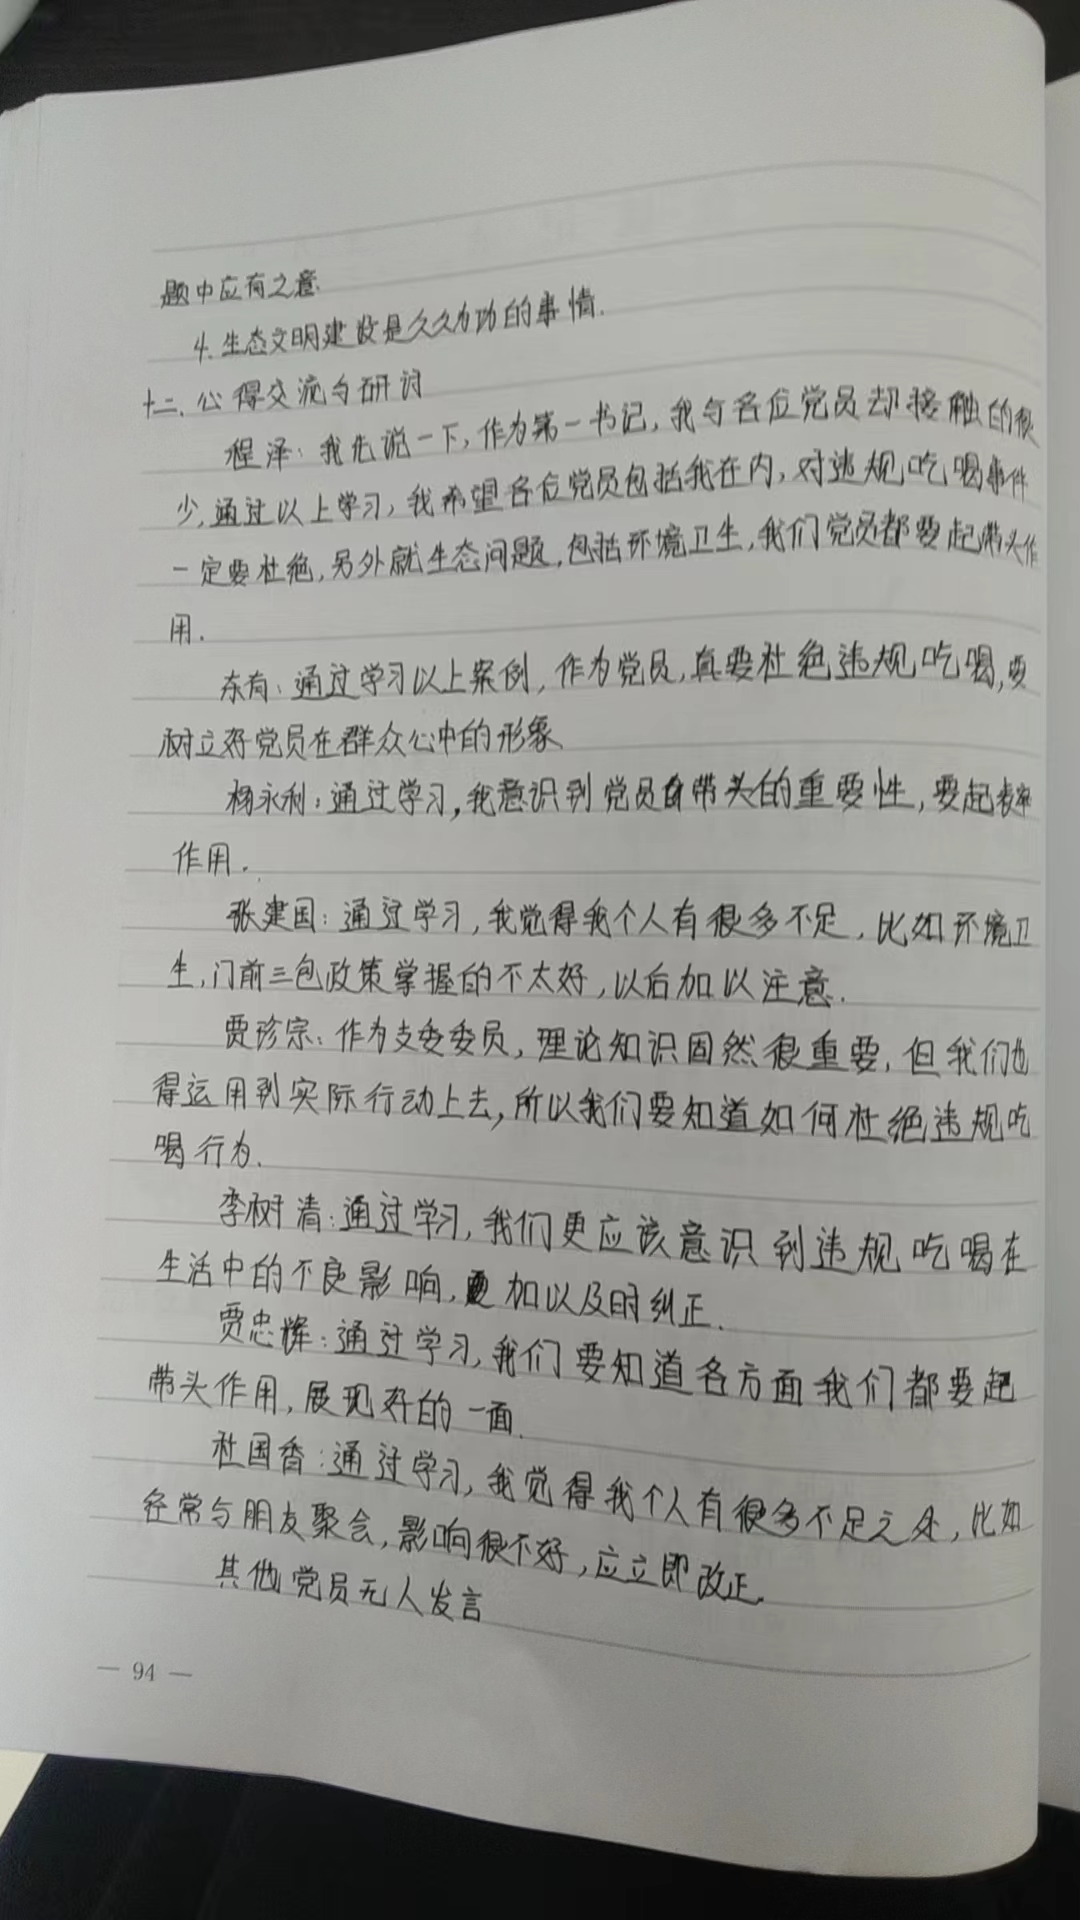 题中应有之意
4.生态文明建设是久久为功的事情.
十二.心得交流与研讨
程泽:我先说一下,作为第一书记,我与各位党员却接触的很
少,通过以上学习,我希望各位党员包括我在内,对违规吃喝事件
一定要杜绝,另外就生态问题,包括环境卫生,我们党员都要起带头作
用.
东有:通过学习以上案例,作为党员,真要杜绝违规吃喝,要
树立好党员在群众心中的形象
杨永利:通过学习,我意识到党员带头的重要性,要起表率
作用.
张建国:通过学习,我觉得我个人有很多不足,比如环境卫
生,门前三包政策掌握的不太好,以后加以注意.
贾珍宗:作为支委委员,理论知识固然很重要,但我们也
得运用到实际行动上去,所以我们要知道如何杜绝违规吃
喝行为.
李树清:通过学习,我们更应该意识到违规吃喝在
生活中的不良影响,更加以及时纠正.
贾忠辉:通过学习,我们要知道各方面我们都要起
带头作用,展现好的一面.
杜国香:通过学习,我觉得我个人有很多不足之处,比如
经常与朋友聚会,影响很不好,应立即改正.
其他党员无人发言
— 94 —